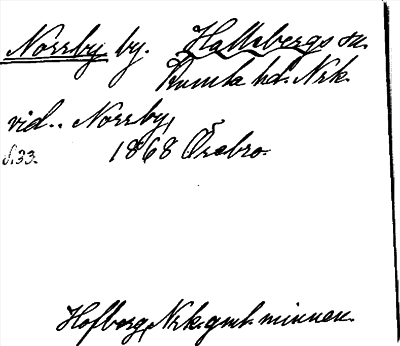 Norrby by. Hallsbergs sn.
Kumla hd. Nrk.
vid.. Norrby,
s. 33. 1868 Örebro.
Hofberg, Nrk. gml. minnen.